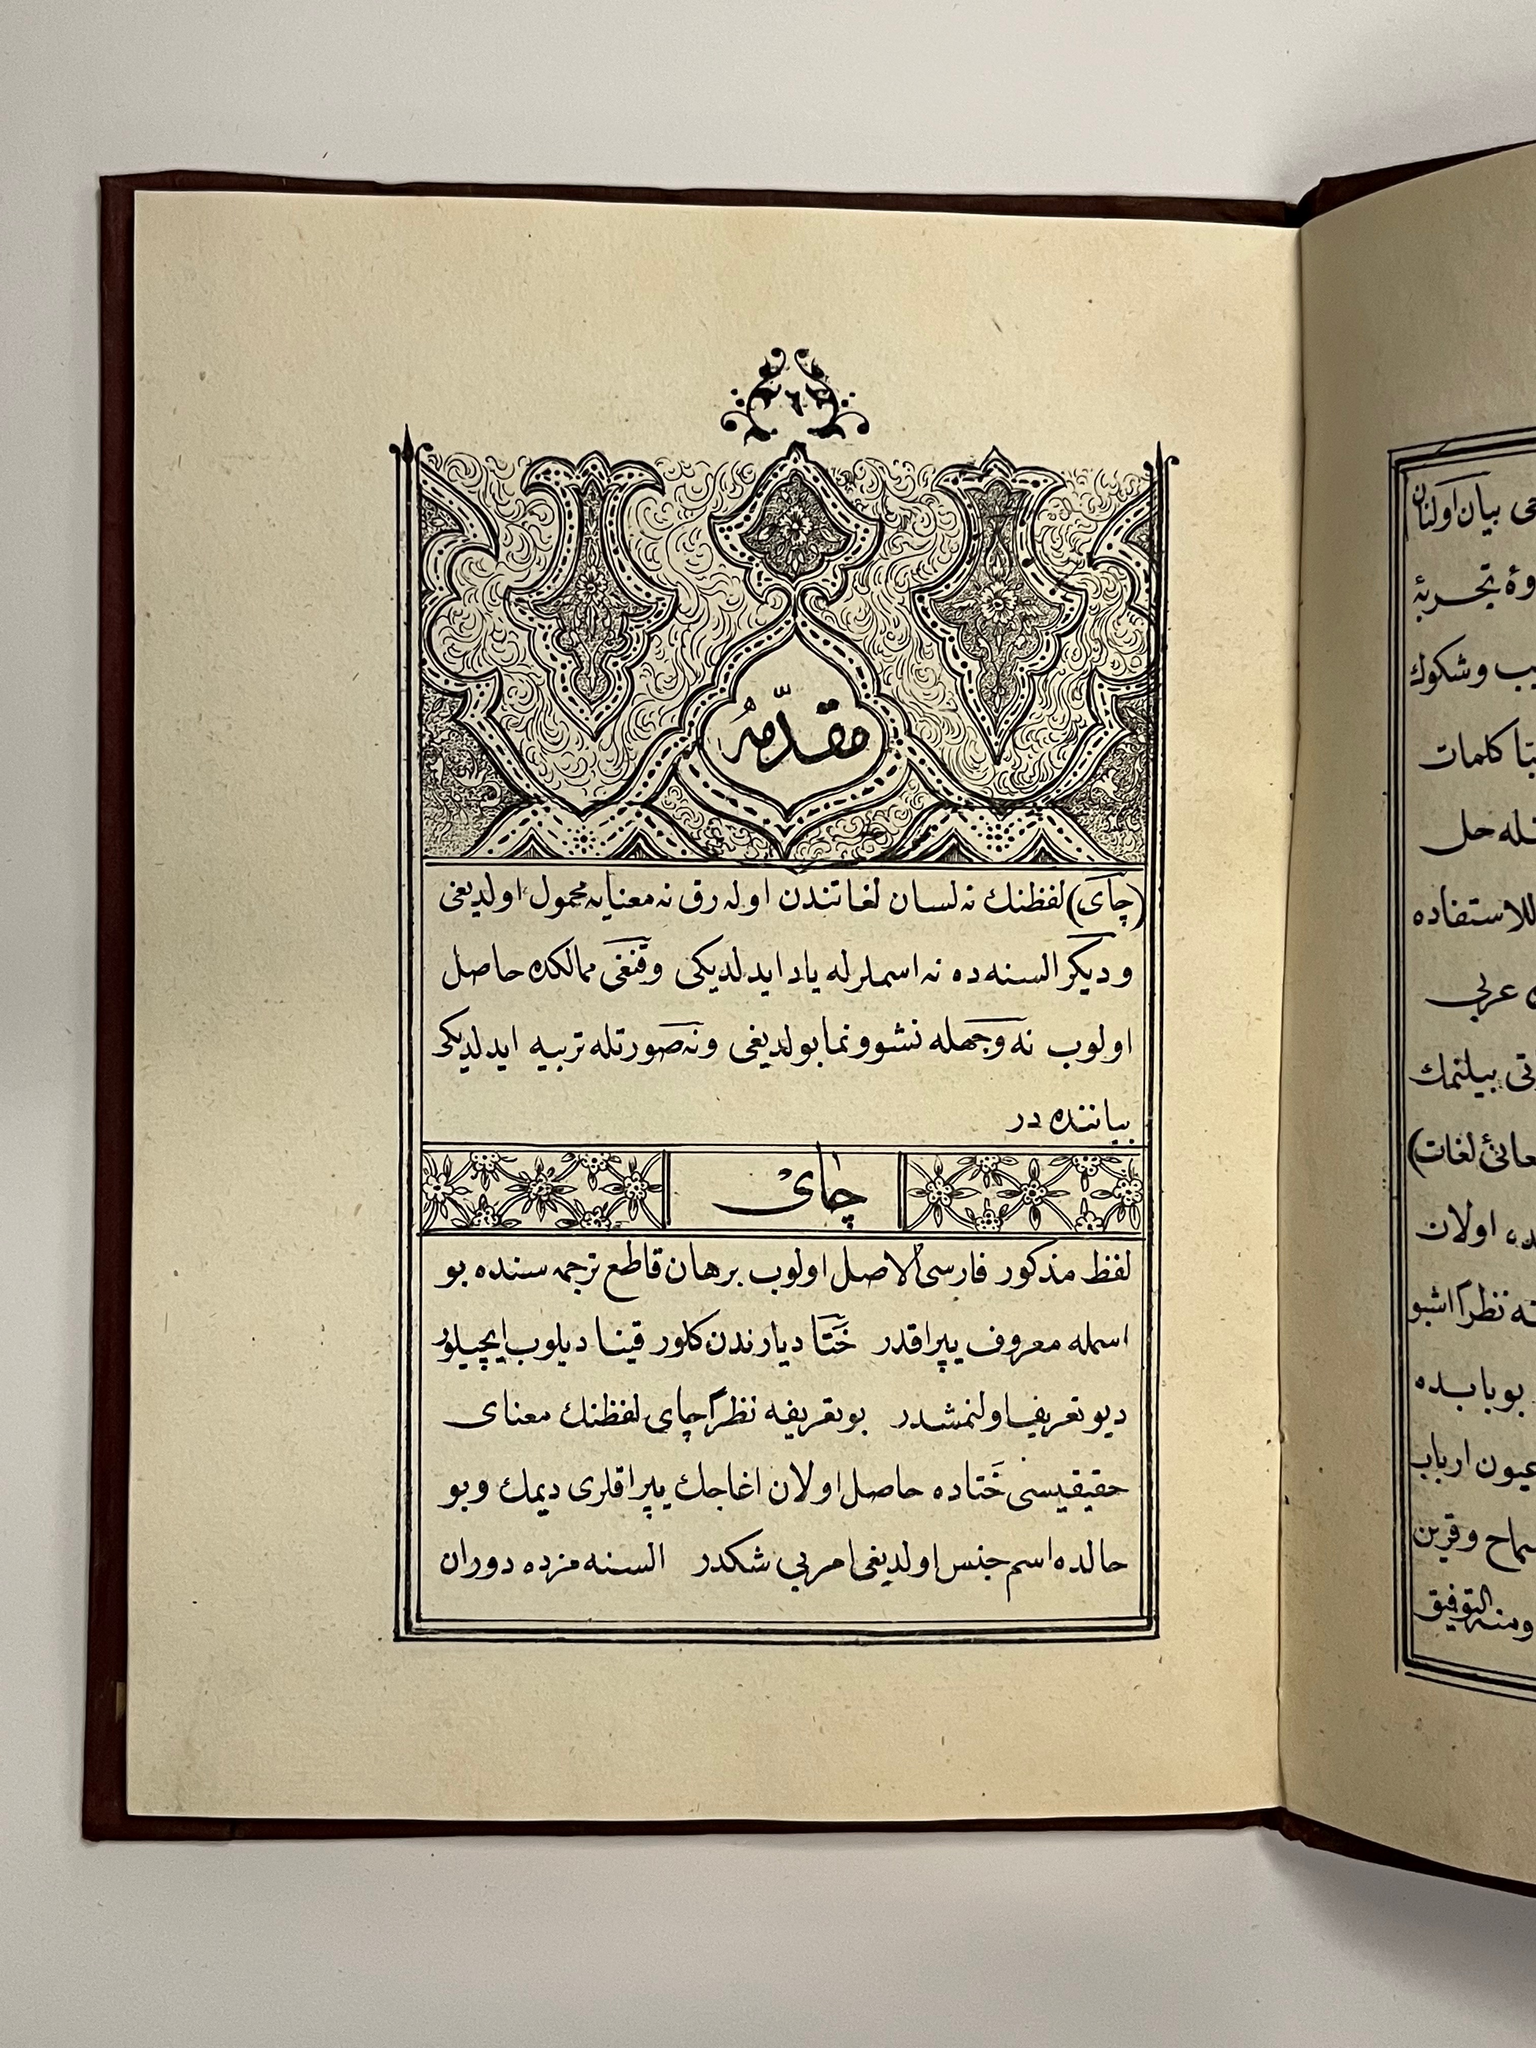 ٦
مقدّمه
(چاى) لفظنك نه لسان لغاتندن اوله رق نه معنايه محمول اولديغى
و ديكر السنه ده نه اسملرله ياد ايدلديكى وقنغى ممالكده حاصل
اولوب نه وجهله نشو ونما بولديغى ونه صورتله تربيه ايدلديكى
بياننده در
چاى
لفظ مذكور فارسى الاصل اولوب برهان قاطع ترجمه سنده بو
اسمله معروف يپراقدر خَتَا ديارندن كلور قينا ديلوب ايچيلور
ديو تعريف اولنمشدر بو تعريفه نظراً چاى لفظنك معناى
حقيقيسنى خَتاده حاصل اولان اغاجك يپراقلرى ديمك وبو
حالده اسم جنس اولديغى امر بى شكدر السنه مزده دوران
بيان اولنان
تجربهٔ
وشكوك
كلمات
حل
للاستفاده
عربى
بيلنمك
لغات)
اولان
نظراً اشبو
بوبابده
عيون ارباب
وقرين
ومنه التوفيق